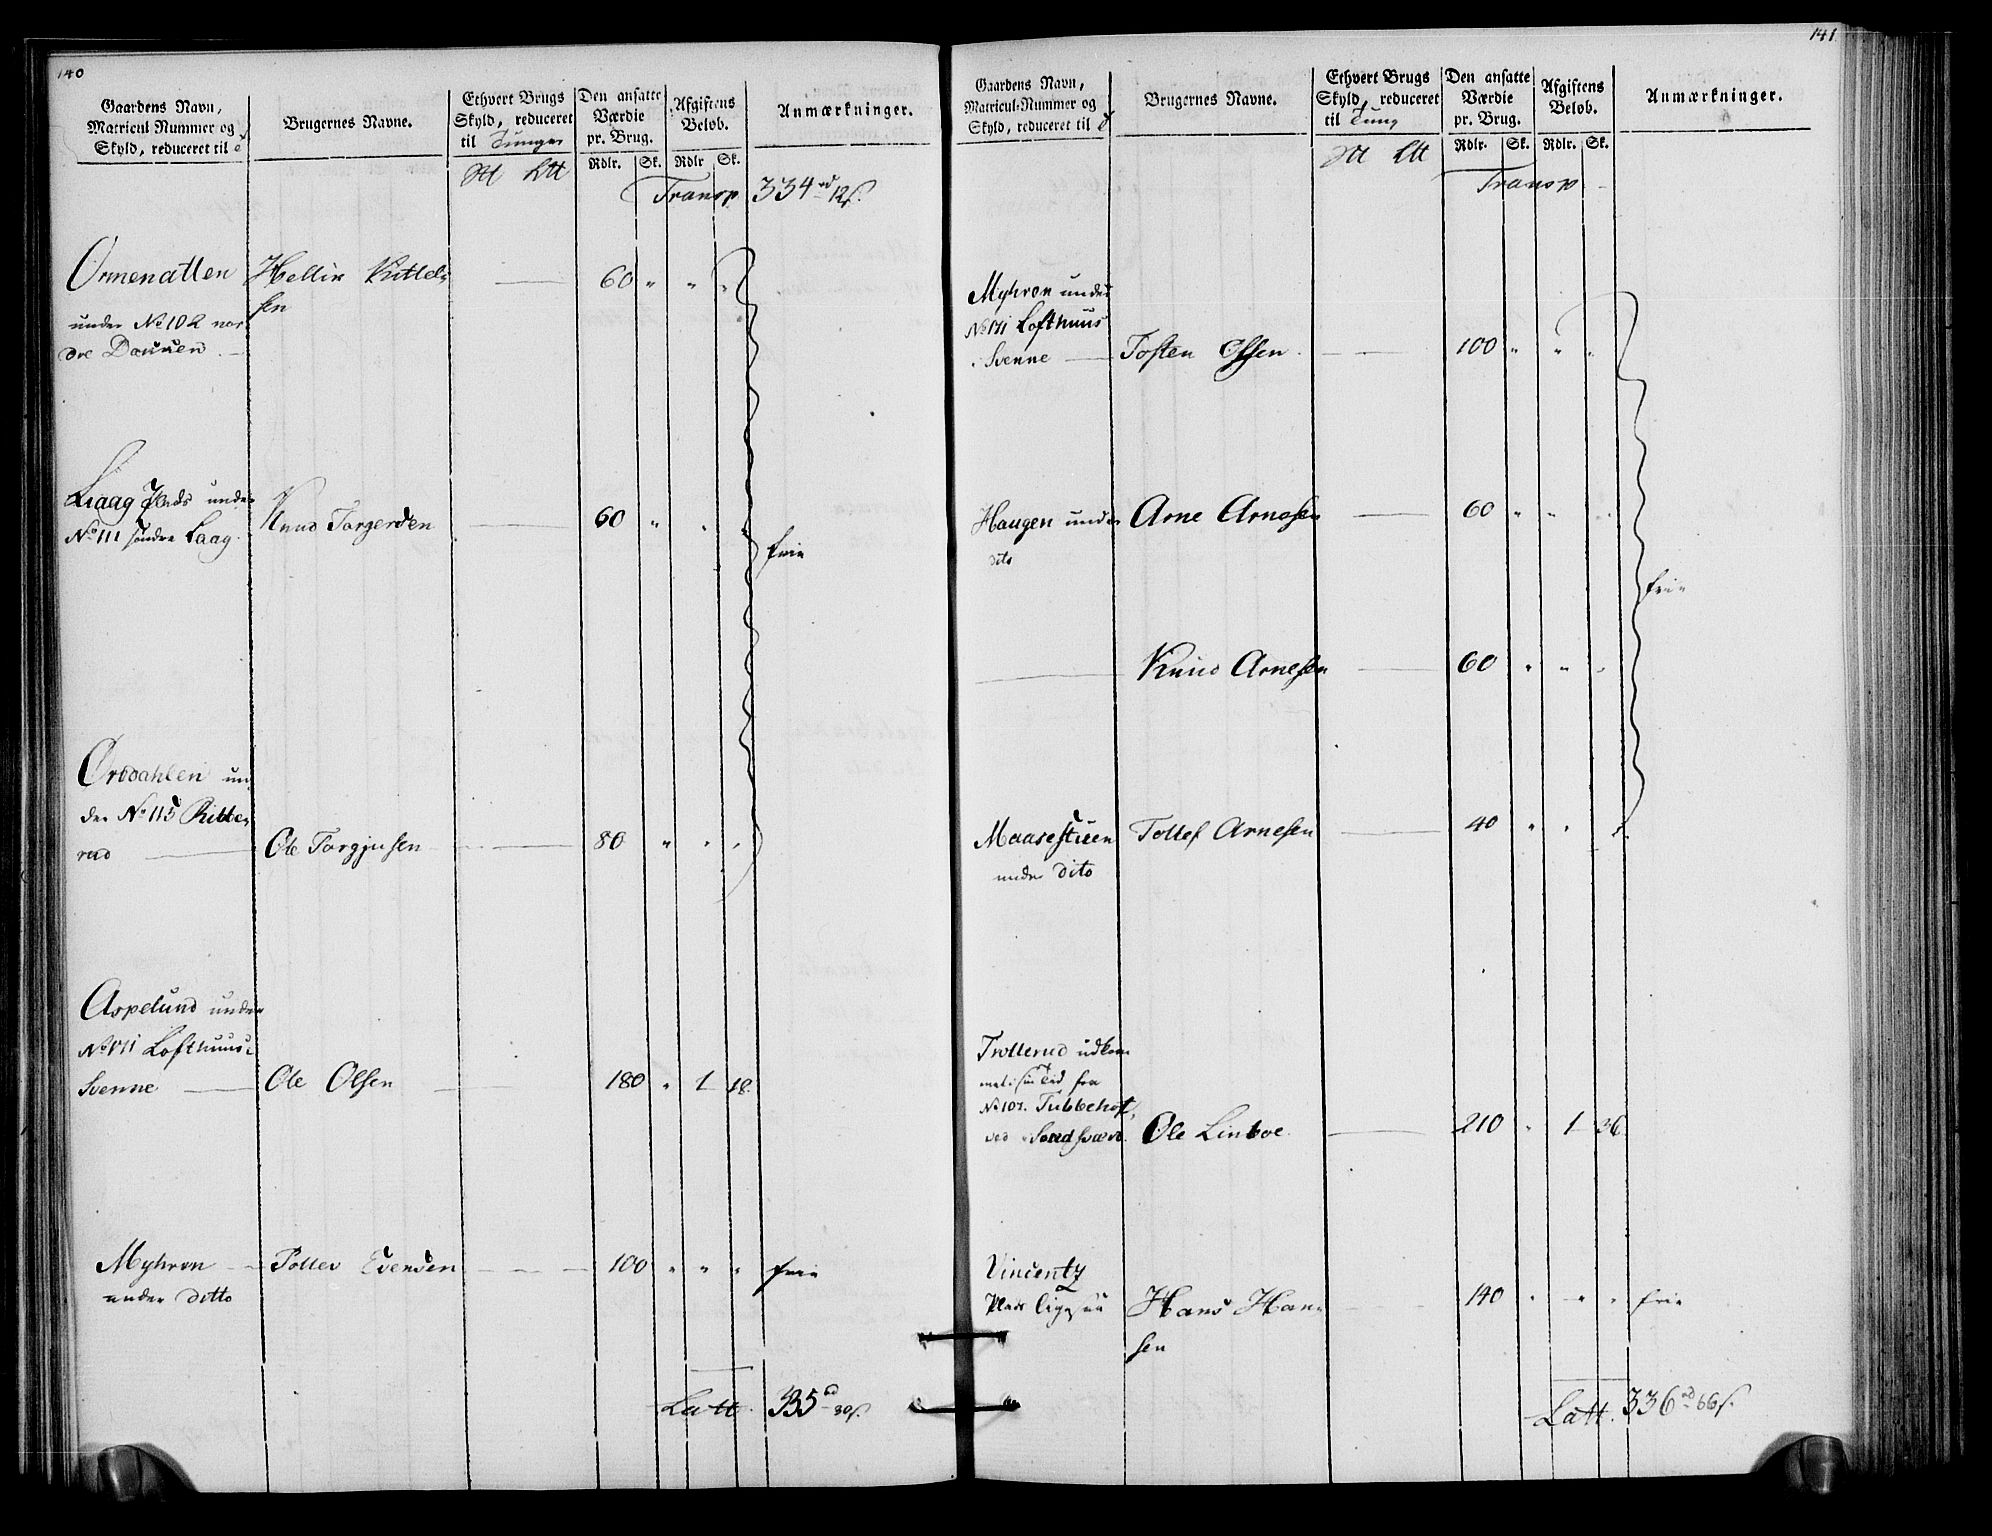 140
Gaardens Navn,
Matricul Nummer og
Skyld, reduceret til
Brugernes Navne.
Ethvert Brugs
Skyld, reduceret
til Tunger
Den ansatte
Værdie
pr. Brug.
Afgiftens
Beløb.
Anmærkninger.
Rdlr. Sk. Rdlr Sk.
Transp 334 rd 12 s.
Ormenatten Hellik Kittel-
sen 60 " " "
under No 102 nor-
dre
Laag Plads under
No 111 søndre Laag Knud Torgersen 60 " " " frie
Ørddahlen un-
der No 115 Ritte-
rud Ole Torgjusen 80 " " "
Aspelund under
No 171 Lofthuus i
Svenne Ole Olsen 180 " 1 18
Myhren Tollev Evensen 100 " " " frie
under ditto
Latt. 335 rd 30 s.
141
Gaardens Navn,
Matricul-Nummer og
Skyld, reduceret til
Brugernes Navne.
Ethvert Brugs
Skyld, reduceret
til Tung
Den ansatte
Værdie
pr. Brug.
Afgiftens
Beløb.
Anmærkninger.
Rdlr. Sk. Rdlr. Sk.
Transp
Myhren under
No 171 Lofthuus
i Svenne Tosten 100 " " "
Haugen under Arne Arnesen 60 " " "
dito
frie
Knud Arnesen 60 " " "
Maasestuen Tollef Arnesen 40 " " "
under dito
Trollerud udkom-
met i sin Tid fra
No 107. Tubbehof
ved Sandsværd. Ole Linboe 210 " 1 36
Vincentz
Plads Hans Han-
sen 140 " " " frie
Latt. 336 rd 66 s.